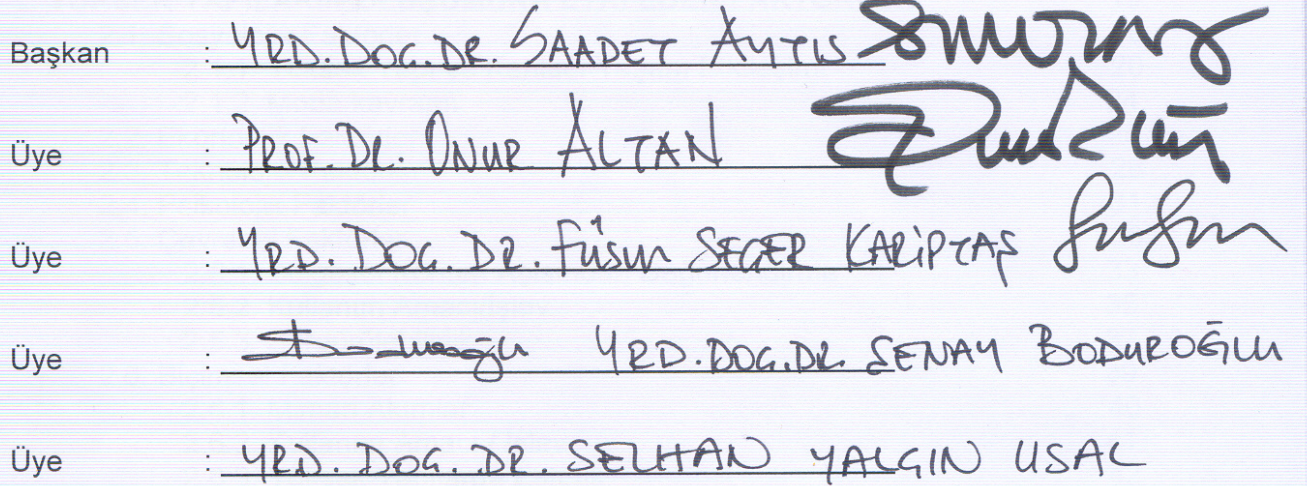 Başkan : YRD. DOÇ. DR. SAADET AYTIS
Üye : PROF. DR. ONUR ALTAN
Üye : YRD. DOÇ. DR. Füsun SEÇER KARİPTAŞ
Üye : YRD. DOÇ. DR. ŞENAY BODUROĞLU
Üye : YRD. DOÇ. DR. SELHAN YALÇIN USAL